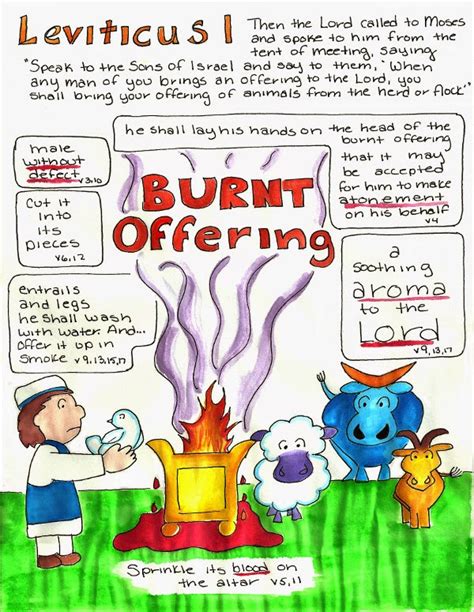 Leviticus 1
Then the Lord called to Moses
and spoke to him from the
tent of meeting, saying
"Speak to the Sons of Israel and say to them, 'When
any man of you brings an offering to the Lord, you
shall bring your offering of animals from the herd or flock."
he shall lay his hands on the head of the
burnt offering
that it may
be accepted
for him to make
atonement
on his behalf
v4
male
without
defect
v3,10
BURNT
Offering
Cut it
into
its
pieces
v6,12
a
soothing
aroma
to the
Lord
v9,13,17
entrails
and legs
he shall wash
with water. And...
offer it up in
smoke v9,13,15,17
Sprinkle its blood on
the altar v5,11